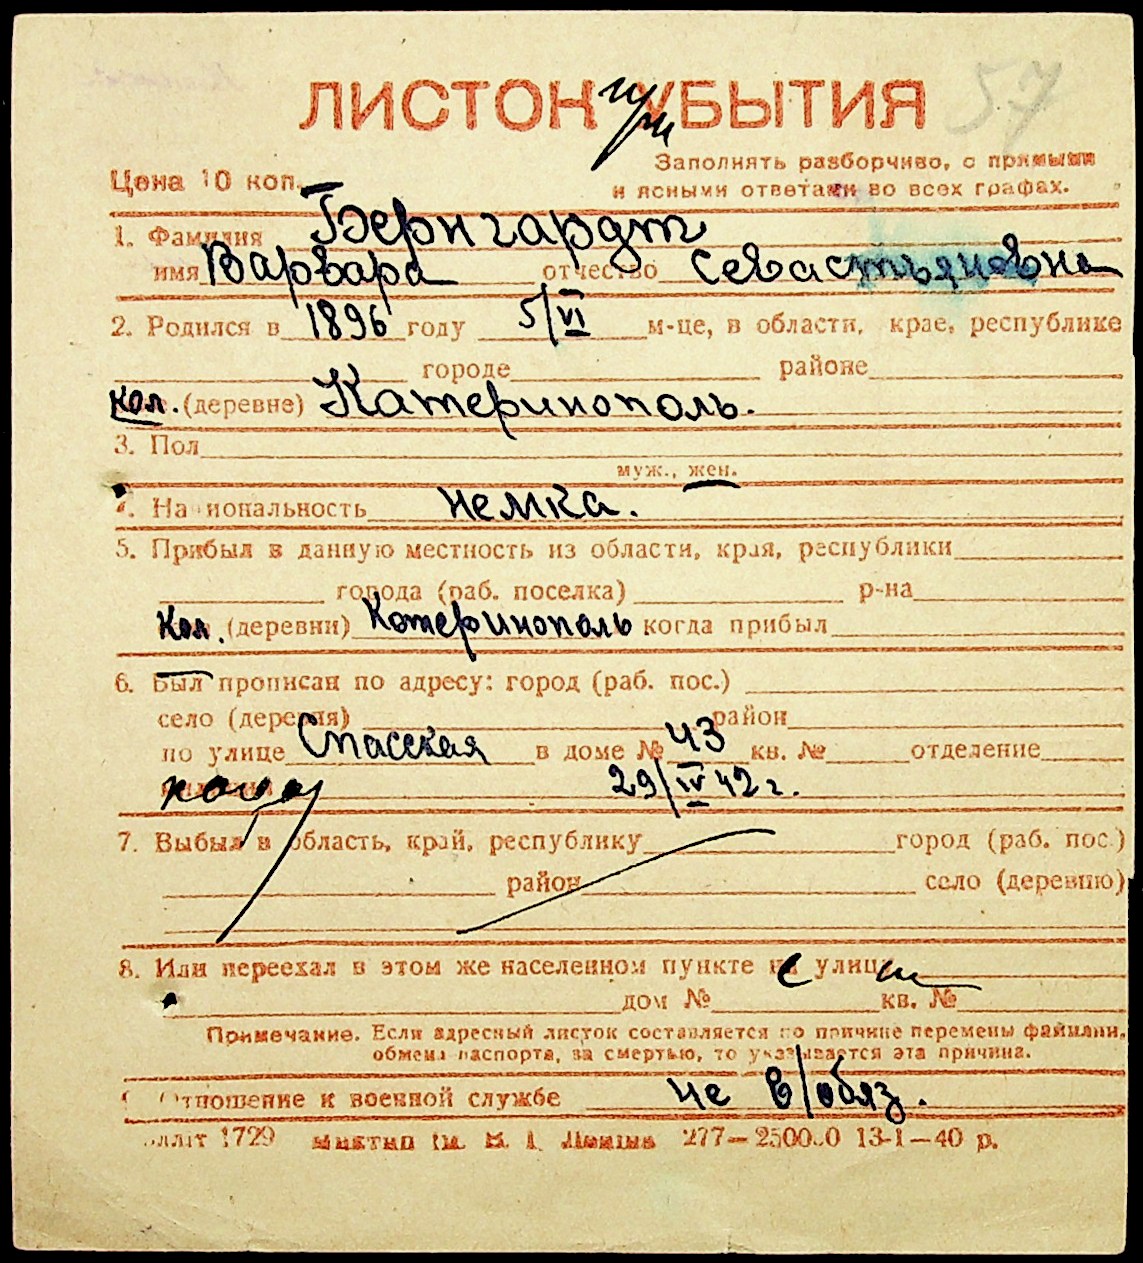 ЛИСТОК УБЫТИЯ
57
Цена 10 коп.
Заполнять разборчиво, с прямыми
и ясными ответами во всех графах.
1. Фамилия Бернгардт
имя Варвара отчество Севастьяновна
2. Родился в 1896 году 5/VI м-це, в области, крае, республике
городе районе
кол. (деревне) Катеринополь.
3. Пол
муж., жен.
4. Национальность немка.
5. Прибыл в данную местность из области, края, республики
города (раб. поселка) р-на
Кол. (деревни) Котеринополь когда прибыл
6. Был прописан по адресу: город (раб. пос.)
село (деревня) район
по улице Спасская в доме № 43 кв. № отделение
29/IV 42 г.
7. Выбыл в область, край, республику город (раб. пос.)
район село (деревню)
8. Или переехал в этом же населенном пункте на улицу
дом № кв. №
Примечание. Если адресный листок составляется по причине перемены фамилии,
обмена паспорта, за смертью, то указывается эта причина.
Отношение к военной службе не в/обяз.
1729 277—2500.0 13-1—40 р.